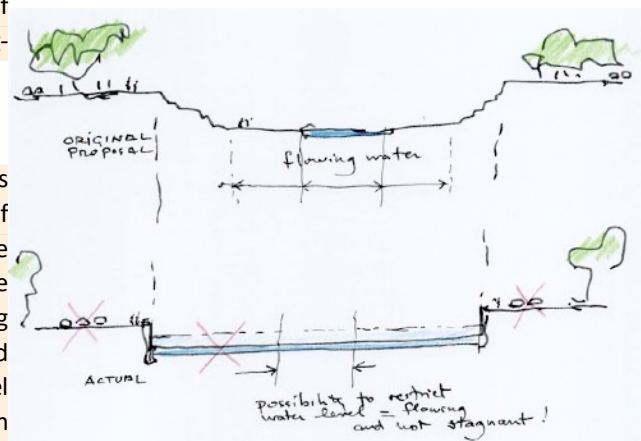 f
-
ORIGINAL
PROPOSAL
flowing water
s
f
e
e
g
d
el
n
ACTUAL
possibility to restrict
water level = flowing
and not stagnant!